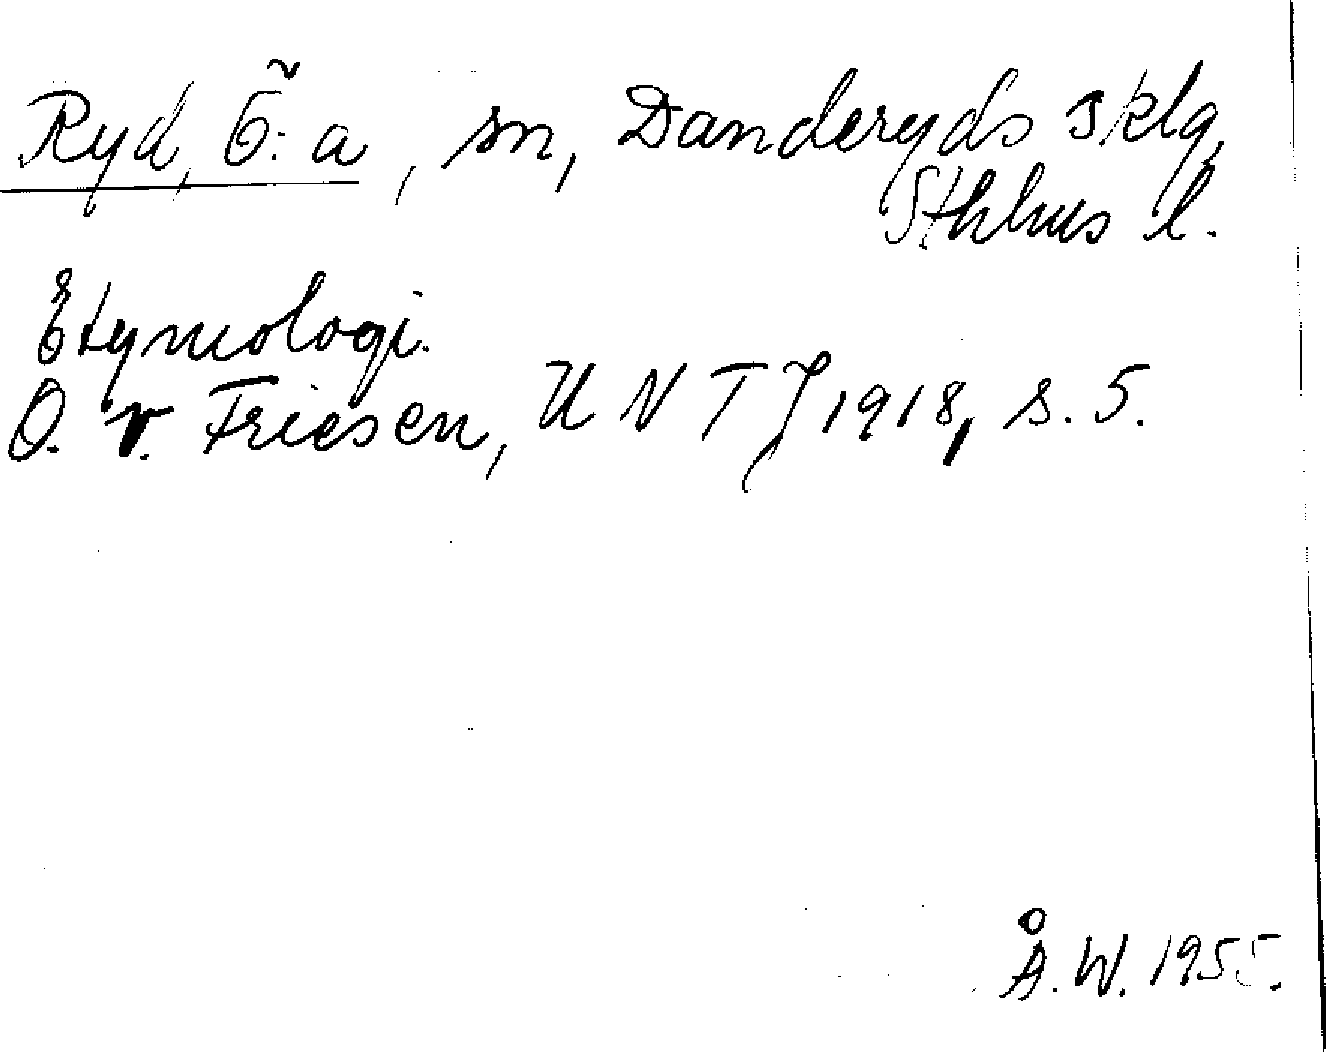 Ryd, Ö:a, sn, Danderyds sklg,
Sthlms l.
Etymologi.
O. v. Friesen, UNT J 1918, s. 5.
Å.W. 1955.